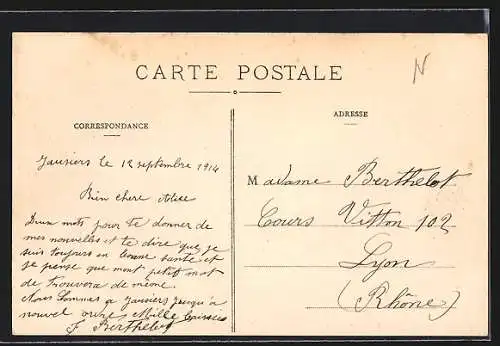 N
CARTE POSTALE
CORRESPONDANCE
ADRESSE
Jausiers le 12 septembre 1914
Bien chere Alice
Deux mots pour te donner de
mes nouvelles et te dire que je
suis toujours en bonne santé et
je pense que mont petit mot
de trouvera de même.
Nous sommes a Jausiers jusqu'a
nouvel ordre Mille baisses
F. Berthelot
Madame Berthelot
Cours Vitton 102
Lyon
(Rhône)